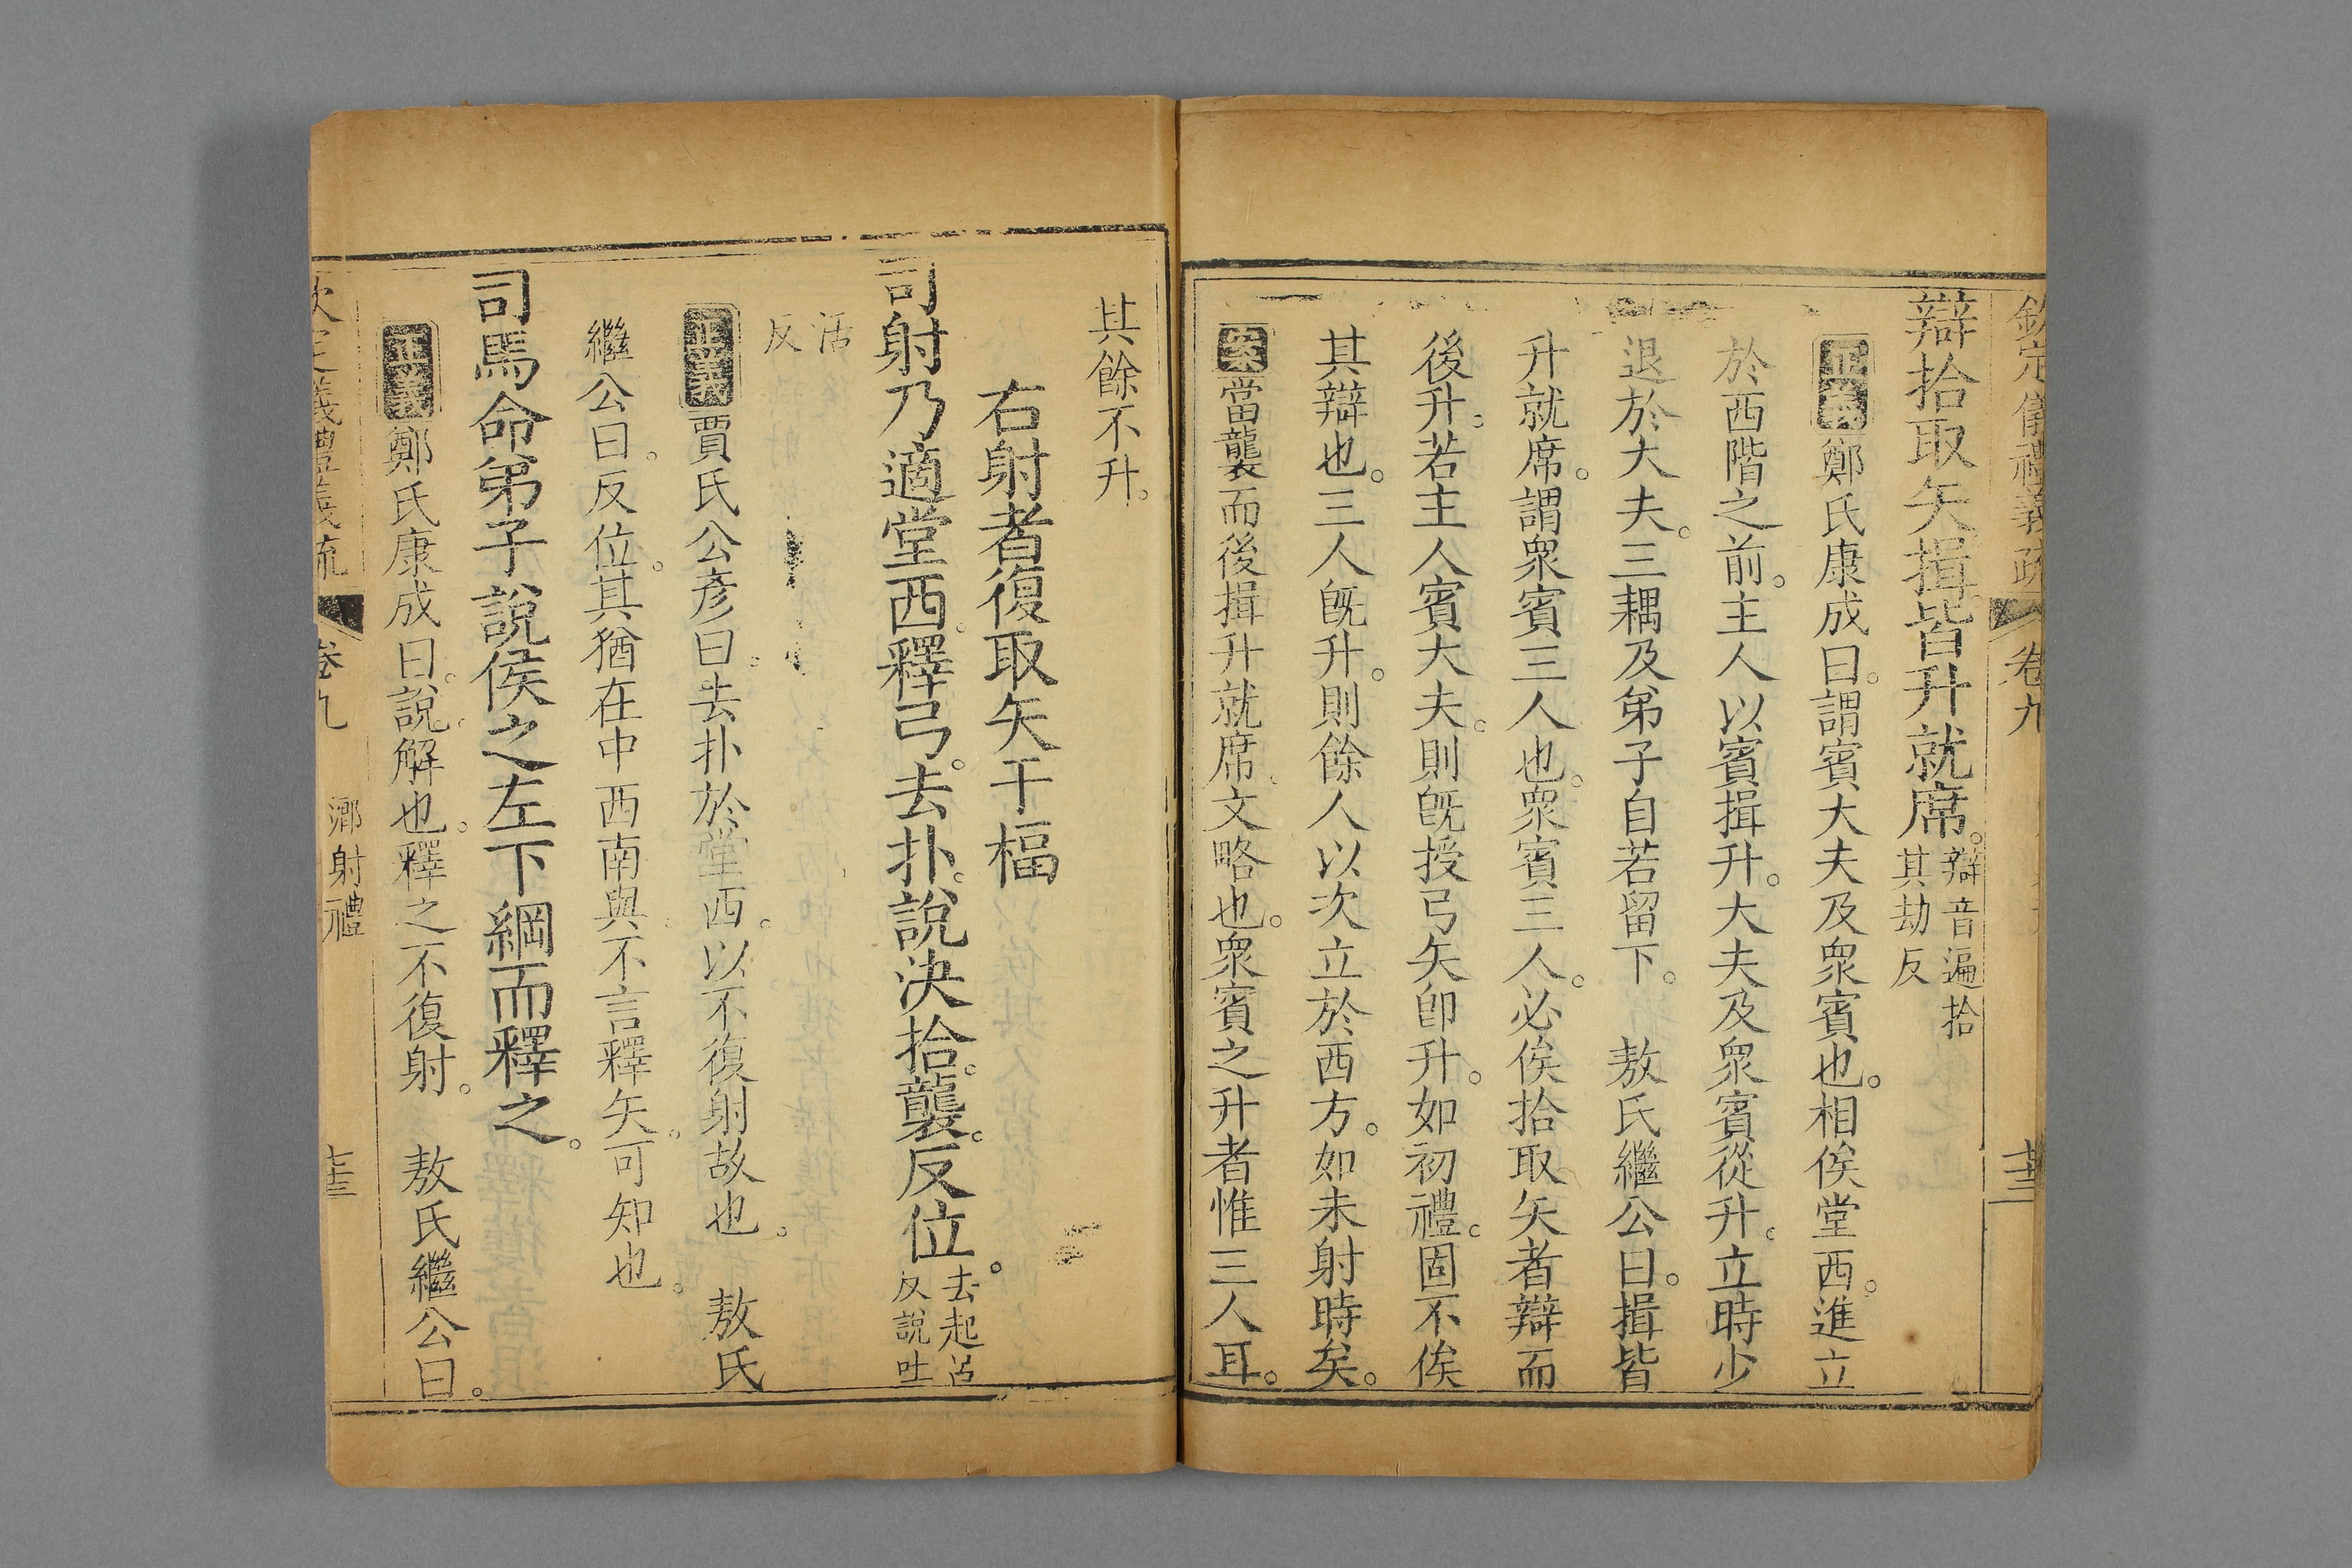 欽定儀禮義疏 卷九
辯拾取矢揖皆升就席。辯音遍拾其劫反
正義鄭氏康成曰。謂賓大夫及眾賓也。相俟堂西。進立
於西階之前。主人以賓揖升。大夫及眾賓從升。立時少
退於大夫。三耦及弟子自若留下。 敖氏繼公曰。揖皆
升就席。謂眾賓三人也。眾賓三人。必俟拾取矢者辯而
後升。若主人賓大夫。則旣授弓矢卽升。如初禮。固不俟
其辯也。三人旣升。則餘人以次立於西方。如未射時矣。
案當襲而後揖升就席。文略也。眾賓之升者惟三人耳。
其餘不升。
右射者復取矢于楅
司射乃適堂西。釋弓。去扑。說決拾。襲。反位。去起呂反說吐
活反
正義賈氏公彥曰。去扑於堂西。以不復射故也。 敖氏
繼公曰。反位。其猶在中西南與。不言釋矢。可知也。
司馬命弟子說侯之左下綱而釋之。
正義鄭氏康成曰。說。解也。釋之不復射。 敖氏繼公曰。
欽定儀禮義疏 卷九 鄉射禮